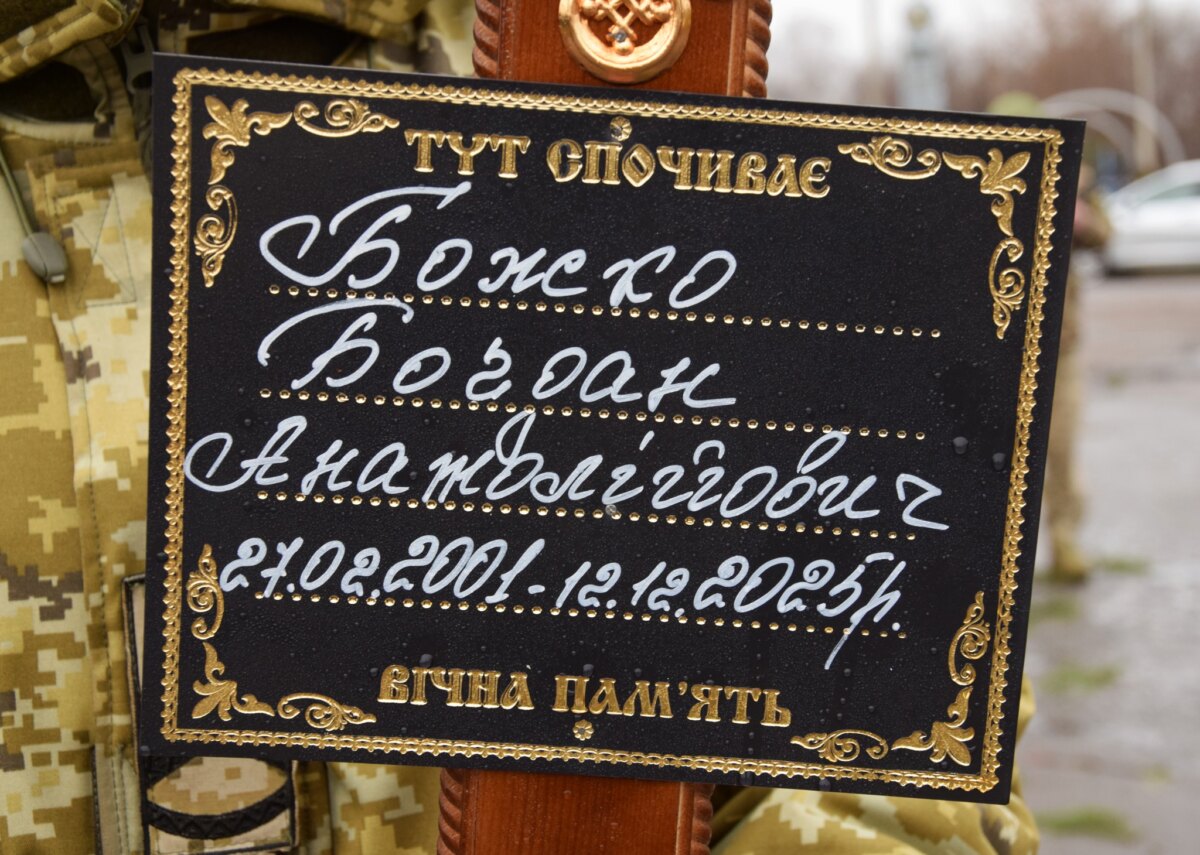 ТУТ СПОЧИВАЄ
Божко
Богдан
Анатолійович
27.02.2001-12.12.2025р.
ВІЧНА ПАМ'ЯТЬ